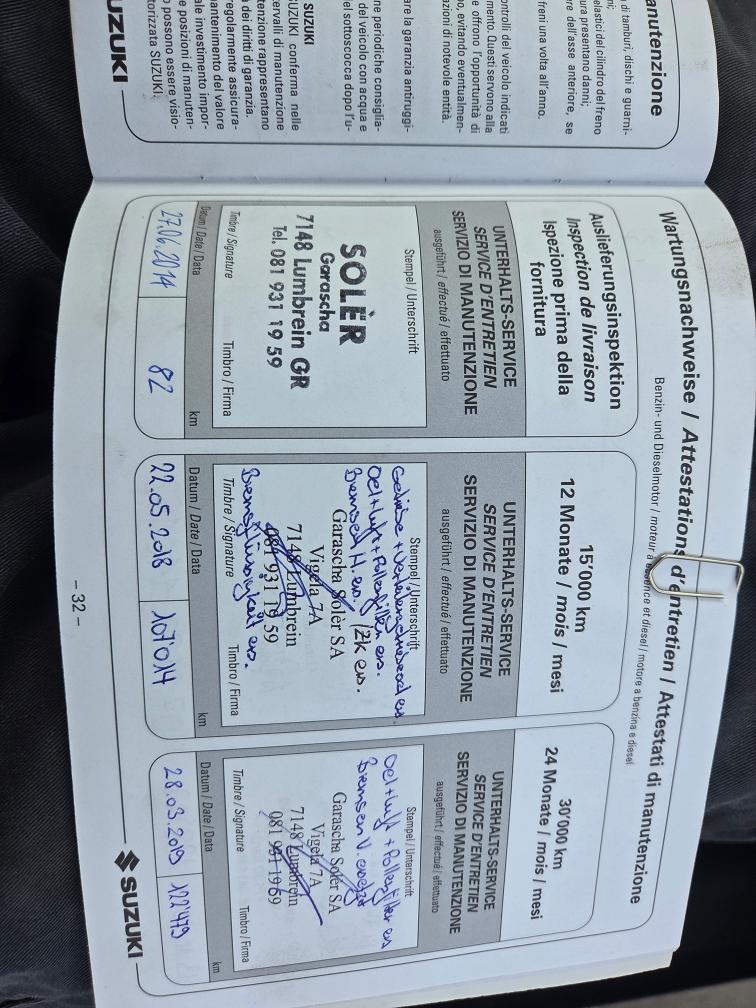 anutenzione
di tamburi, dischi e guarni-
elastici del cilindro del freno
ura presentano danni;
ere dell'asse anteriore, se
freni una volta all'anno.
ontrolli del veicolo indicati
mento. Questi servono alla
e offrono l'opportunità di
o, evitando eventualmen-
azioni di notevole entità.
are la garanzia antiruggi-
ne periodiche consiglia-
del veicolo con acqua e
el sottoscocca dopo l'u-
SUZUKI
UZUKI conferma nelle
ervalli di manutenzione
tenzione rappresentano
dei diritti di garanzia.
regolarmente assicura-
antenimento del valore
ale investimento impor-
e posizioni di manuten-
possono essere visio-
torizzata SUZUKI.
UZUKI
Wartungsnachweise / Attestations d'entretien / Attestati di manutenzione
Benzin- und Dieselmotor / moteur à essence et diesel / motore a benzina e diesel
Auslieferungsinspektion
Inspection de livraison
Ispezione prima della
fornitura
UNTERHALTS-SERVICE
SERVICE D'ENTRETIEN
SERVIZIO DI MANUTENZIONE
ausgeführt / effectué / effettuato
Stempel / Unterschrift
SOLÈR
Garascha
7148 Lumbrein GR
Tel. 081 931 19 59
Timbre / Signature Timbro / Firma
Datum / Date / Data km
27.06.2014 82
15'000 km
12 Monate / mois / mesi
UNTERHALTS-SERVICE
SERVICE D'ENTRETIEN
SERVIZIO DI MANUTENZIONE
ausgeführt / effectué / effettuato
Stempel / Unterschrift
Getriebe + ers.
Oel + Luft + Pollenfilter ers.
Bremsen H. ers. / ZK ers.
Garascha Solèr SA
Vigela 7A
7148 Lumbrein
081 931 19 59
Bremsflüssigkeit ers.
Timbre / Signature Timbro / Firma
Datum / Date / Data km
22.05.2018 107'014
30'000 km
24 Monate / mois / mesi
UNTERHALTS-SERVICE
SERVICE D'ENTRETIEN
SERVIZIO DI MANUTENZIONE
ausgeführt / effectué / effettuato
Stempel / Unterschrift
Oel + Luft + Pollenfilter ers
Bremsen V. ersetzt
Garascha Solèr SA
Vigela 7A
7148 Lumbrein
081 931 19 59
Timbre / Signature Timbro / Firma
Datum / Date / Data km
28.03.2019 122'479
– 32 –
SUZUKI